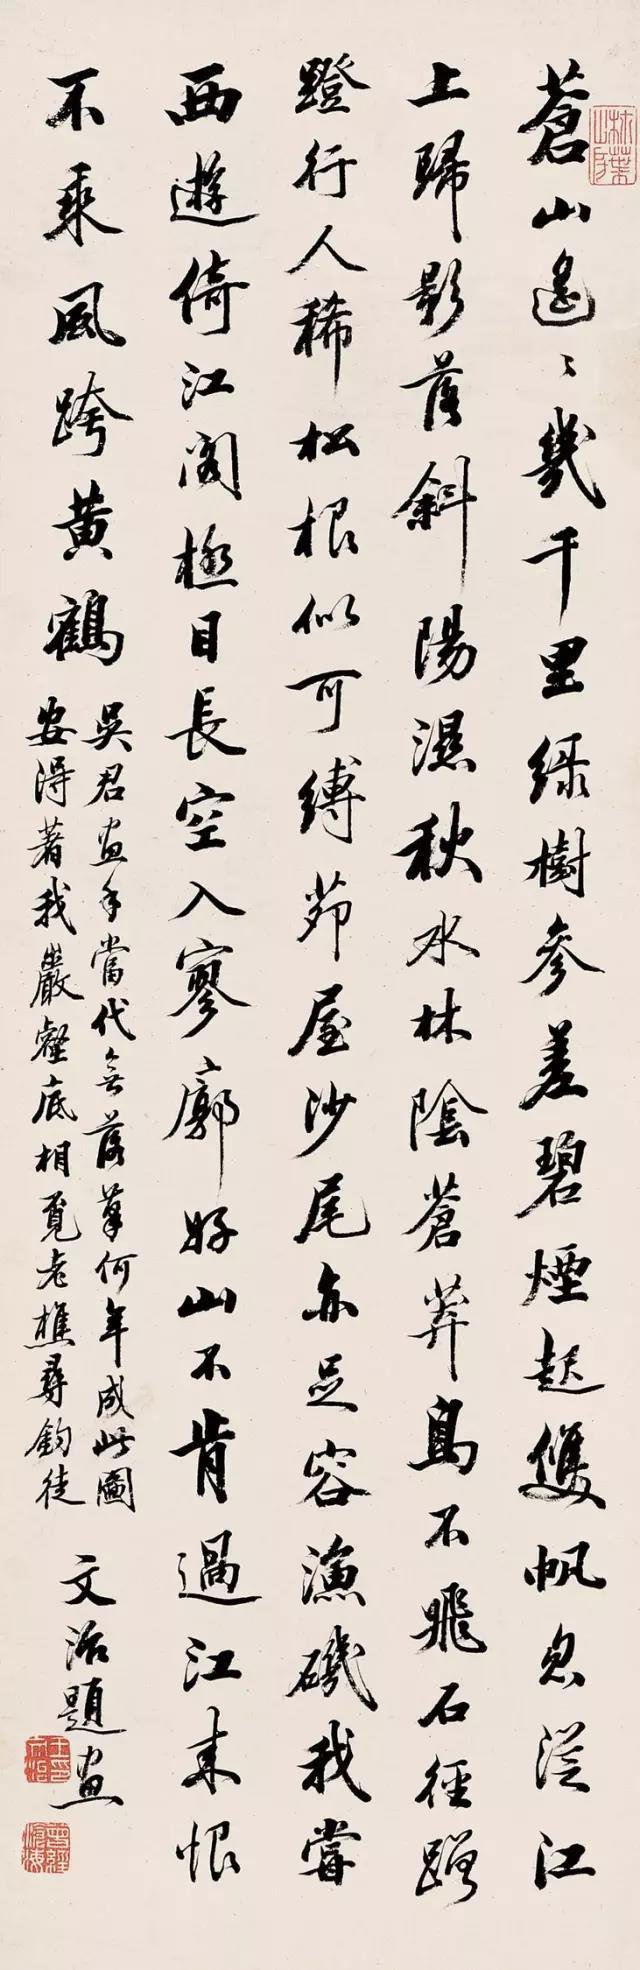 蒼山遙〻幾千里綠樹參差碧煙起雙帆忽從江
上歸影落斜陽濕秋水林陰蒼莽鳥不飛石徑蹭
蹬行人稀松根似可縛茆屋沙尾亦足容漁磯我嘗
西遊倚江閣極目長空入寥廓好山不肯過江來恨
不乘風跨黃鶴
吳君畫手當代無落筆何年成此圖
安得著我巖壑底相覓老樵尋釣徒
文治題畫